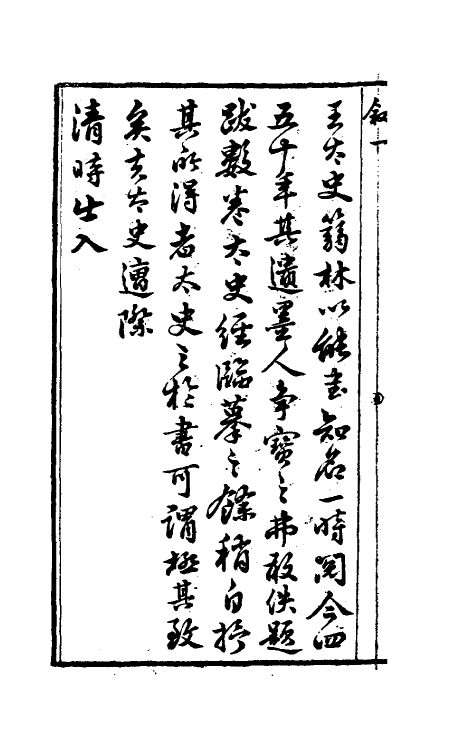 敘一
王太史蒻林以能書知名一時閱今四
五十年其遺墨人爭寶之弗敢佚題
跋數卷太史經臨摹之餘稍自抒
其所得者太史之於書可謂極其致
矣夫太史遭際
清時出入